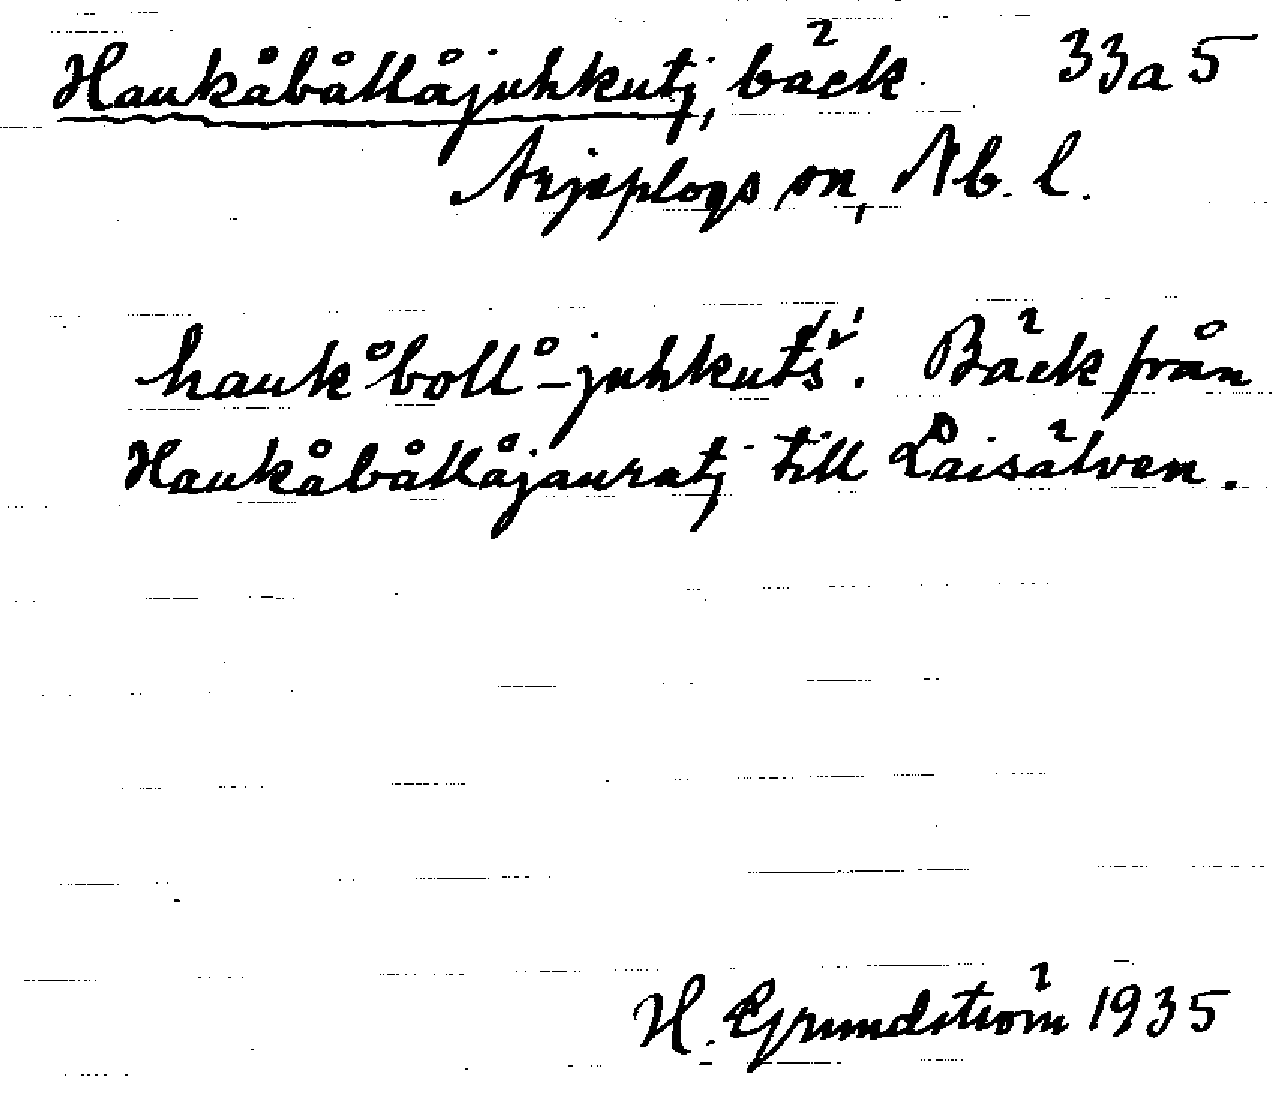 Haukåbållåjuhkutj, bäck. 33a5
Arjeplogs sn, Nb. l.
haukåbollå-juhkutš́. Bäck från
Haukåbållåjauratj till Laisälven.
H. Grundström 1935